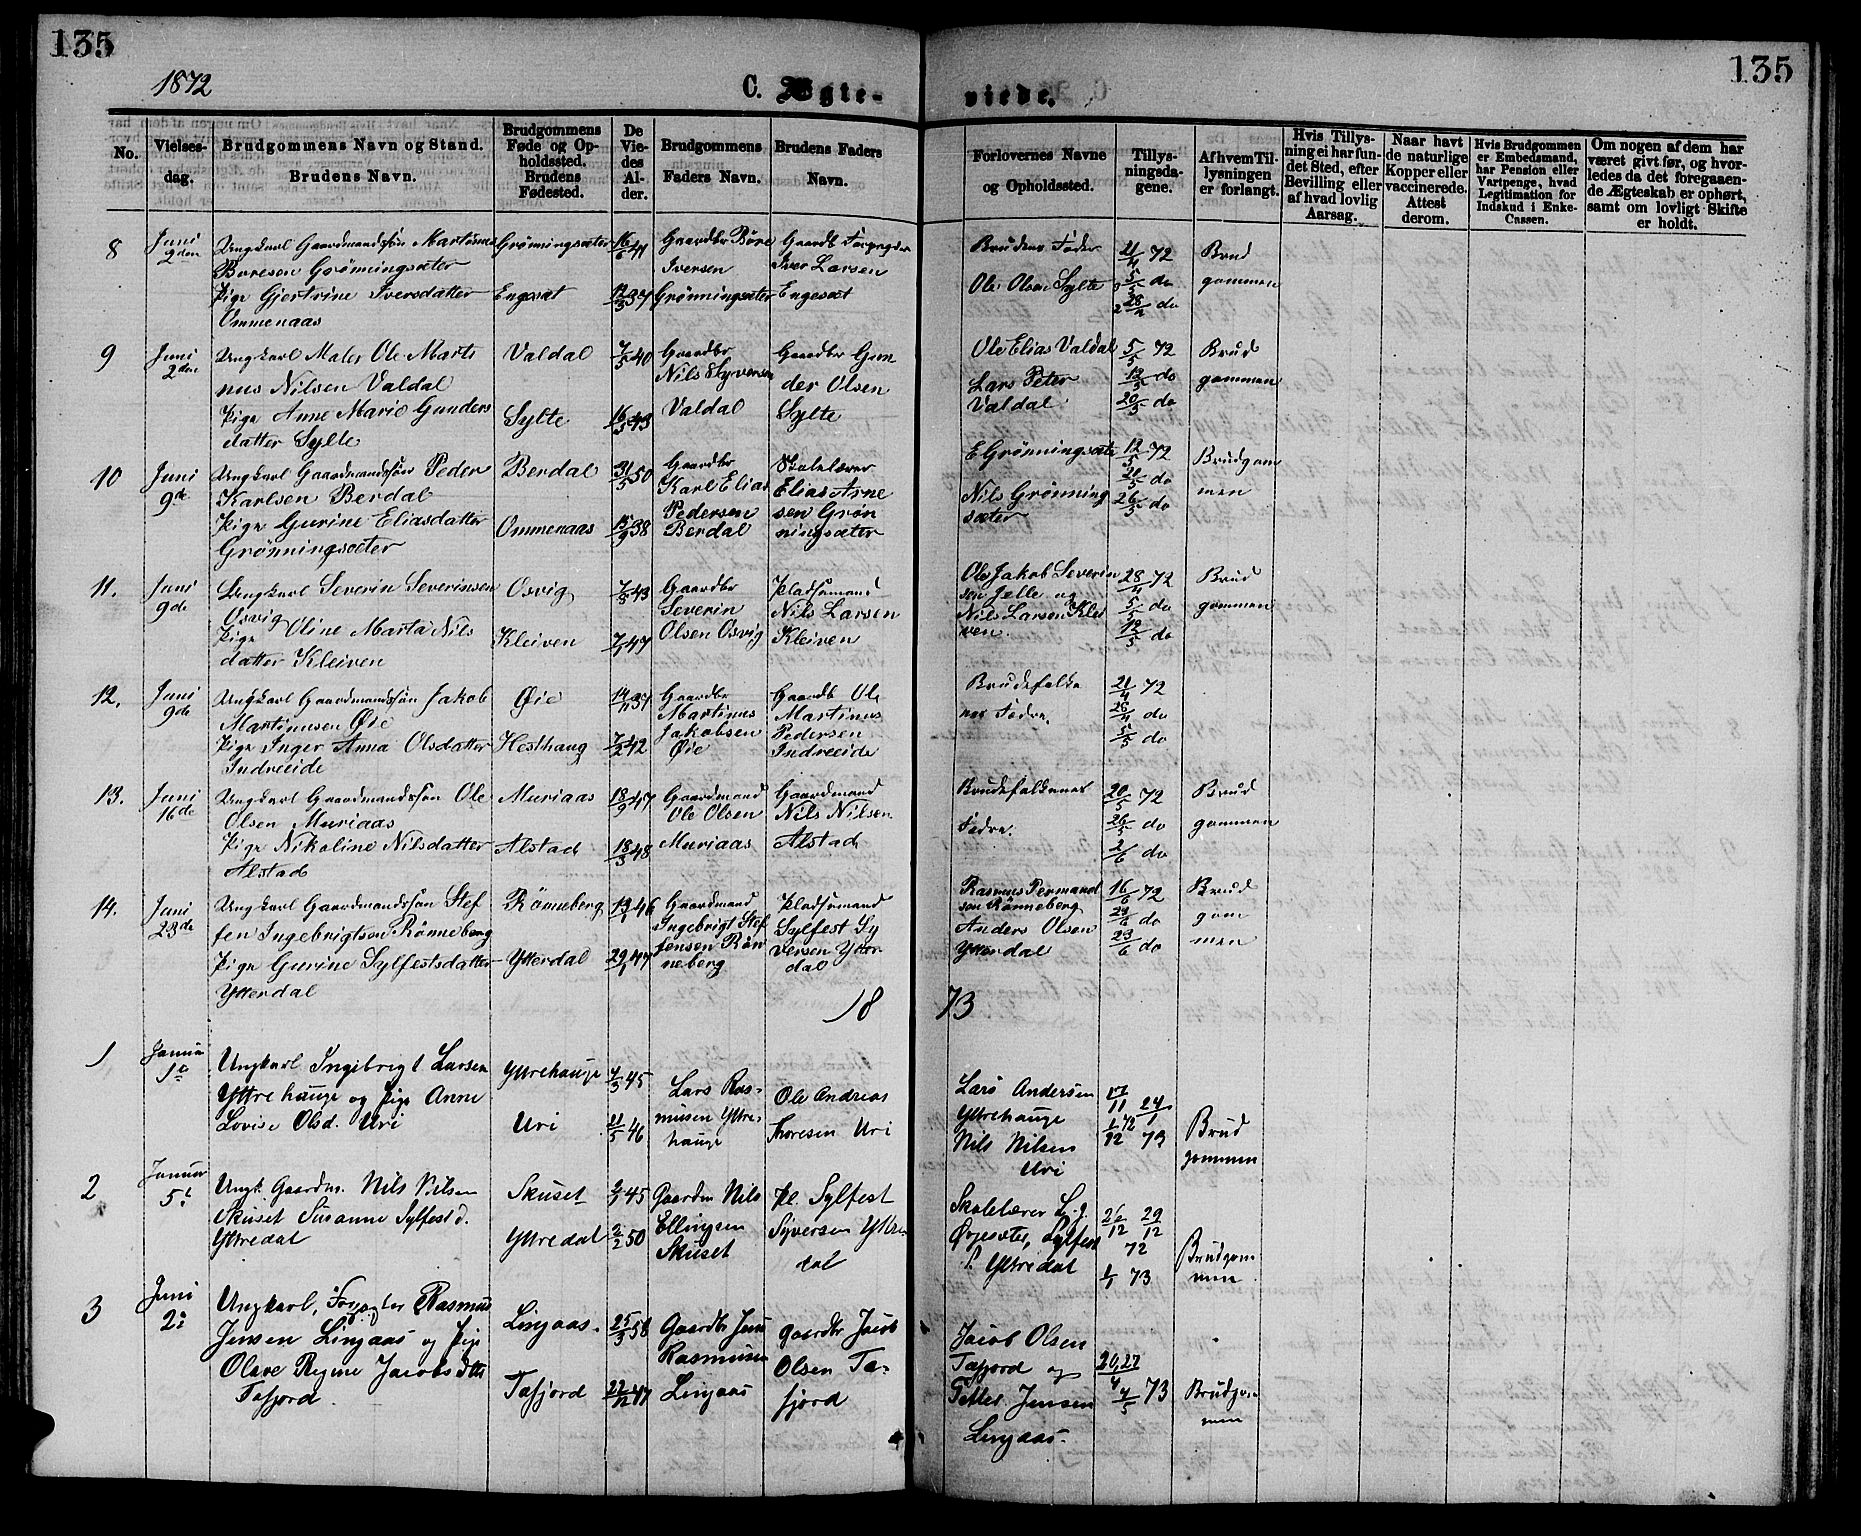 135
135
1872
C. Ægte-
viede.
No.
Vielses-
dag.
Brudgommens Navn og Stand.
Brudens Navn.
Brudgommens
Føde og Op-
holdssted.
Brudens
Fødested.
De
Vie-
des
Al-
der.
Brudgommens
Faders Navn.
Brudens Faders
Navn.
Forlovernes Navne
og Opholdssted.
Tillys-
ningsda-
gene.
Af hvem Til-
lysningen
er forlangt.
Hvis Tillys-
ning ei har fun-
det Sted, efter
Bevilling eller
af hvad lovlig
Aarsag.
Naar havt
de naturlige
Kopper eller
vaccinerede.
Attest
derom.
Hvis Brudgommen
er Embedsmand,
har Pension eller
Vartpenge, hvad
Legitimation for
Indskud i Enke-
Cassen.
Om nogen af dem har
været givt før, og hvor-
ledes da det foregaaen-
de Ægteskab er ophørt,
samt om lovligt Skifte
er holdt.
8
Juni
2den
Ungkarl Gaardmandssøn Martinus
Boresen Grønningsæter
Pige Gjertrine Iversdatter
Ommenaas
Grønningsæter
Engesæt
16/6 41
12/3 37
Gaardbr Børe
Iversen
Grønningsæter
Gaardb Forpagter
Iver Larsen
Engesæt
Brudens Fader
Ole Olsen Sylte
21/4 72
5/5 do
28/4 do
Brud
gommen
9
Juni
2den
Ungkarl Maler Ole Marti
nus Nilsen Valdal
Pige Anne Marie Gunders
datter Sylte
Valdal
Sylte
7/5 40
16/3 43
Gaardbr
Nils Syversen
Valdal
Gaardbr Gun
der Olsen
Sylte
Ole Elias Valdal
Lars Peter
Valdal
5/5 72
12/5 do
20/5 do
Brud
gommen
10
Juni
9de
Ungkarl Gaardmandssøn Peder
Karlsen Berdal
Pige Gurine Eliasdatter
Grønningsæter
Berdal
Ommenaas
31/5 50
15/9 38
Gaardbr
Karl Elias
Pedersen
Berdal
Skolelærer
Elias Arne
sen Grøn
ningsæter
E Grønningsæte
Nils Grønning
sæter
12/5 72
21/5 do
26/5 do
Brudgom
men
11.
Juni
9de
Ungkarl Severin Severinsen
Osvig
Pige Oline Marta Nils
datter Kleiven
Osvig
Kleiven
7/8 43
7/1 47
Gaardbr
Severin
Olsen Osvig
Pladsemand
Nils Larsen
Kleiven
Ole Jakob Severin
sen Jelle og
Nils Larsen Klei
ven.
28/4 72
5/5 do
12/5 do
Brud
gommen
12.
Juni
9de
Ungkarl Gaardmandssøn Jakob
Martinusen Øie
Pige Inger Anna Olsdatter
Indreeide
Øie
Hesthaug
14/11 37
7/2 42
Gaardbr
Martinus
Jakobsen
Øie
Gaardb Ole
Martinus
Pedersen
Indreeide
Brudefolke
nes Fædre.
21/4 72
26/4 do
5/5 do
13.
Juni
16de
Ungkarl Gaardmandssøn Ole
Olsen Muriaas
Pige Nikoline Nilsdatter
Alstad
Muriaas
Alstad
18/9 47
18/3 48
Gaardmand
Ole Olsen
Muriaas
Gaardmand
Nils Nilsen
Alstad
Brudefolkenes
Fædre.
20/5 72
26/5 do
2/6 do
Brud
gommen
14.
Juni
23de
Ungkarl Gaardmandssøn Stef
fen Ingebrigtsen Rønneberg
Pige Gurine Sylfestsdatter
Ytterdal
Rønneberg
Ytterdal
19/1 46
29/1 47
Gaardmand
Ingebrigt Stef
fensen Røn
neberg
Pladsemand
Sylfest Sy
versen Ytter
dal
Rasmus Permand
sen Rønneberg
Anders Olsen
Ytterdal
16/6 72
23/6 do
23/6 do
Brud
gom
men
18 73
1
Januar
1e
Ungkarl Ingebrigt Larsen
Yttrehauge og Pige Anne
Lovise Olsd. Uri
Yttrehauge
Uri
4/3 45
21/5 46
Lars Ras-
musen Yttre-
hauge
Ole Andreas
Thoresen Uri
Lars Andersen
Yttrehauge
Nils Nilsen
Uri
17/11 24/1
1/12 72 73
Brud
gommen
2
Januar
5t
Ungk. Gaardm. Nils Nilsen
Skuset Susanne Sylfestd.
Yttredal
Skuset
Yttredal
2/1 45
2/2 50
Gaardm Nils
Ellingsen
Skuset
Pl. Sylfest
Syversen Yttre-
dal
Skolelærer L. J.
Ørjesæter, Sylfest
S. Yttredal
26/12 29/12
72
1/1 73
Brudgom
men
3
Juni
2:
Ungkarl, Forpagter Rasmus
Jensen Lingaas og Pige
Olave Regine Jacobsdtt
Tafjord
Lingaas.
Tafjord
25/3 58
22/12 47
Gaardbr Jens
Rasmusen
Lingaas
gaardbr Jacob
Olsen Ta-
fjord
Jacob Olsen
Tafjord og
Petter Jensen
Lingaas.
20,27/4
4/5 73
Brudgom
men